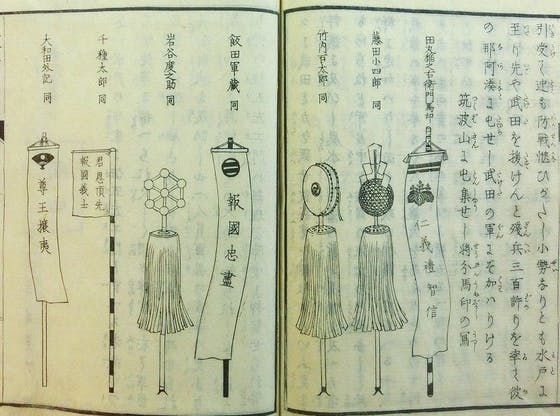 引受く迚も防戦慥ひがたし小勢なりとも水戸に
至り先や武田を援けんと残兵三百許りを率て彼
の那阿湊に屯せし武田の軍にぞ加ハりける
筑波山に屯集せし将等馬印の冩
田丸稲之右衛門馬印
仁義禮智信
藤田小四郎 同
竹内百太郎 同
飯田軍藏 同
報國忠畫
岩谷慶之助 同
千種太郎 同
君恩頂先
報國義士
大和田外記 同
尊王攘夷